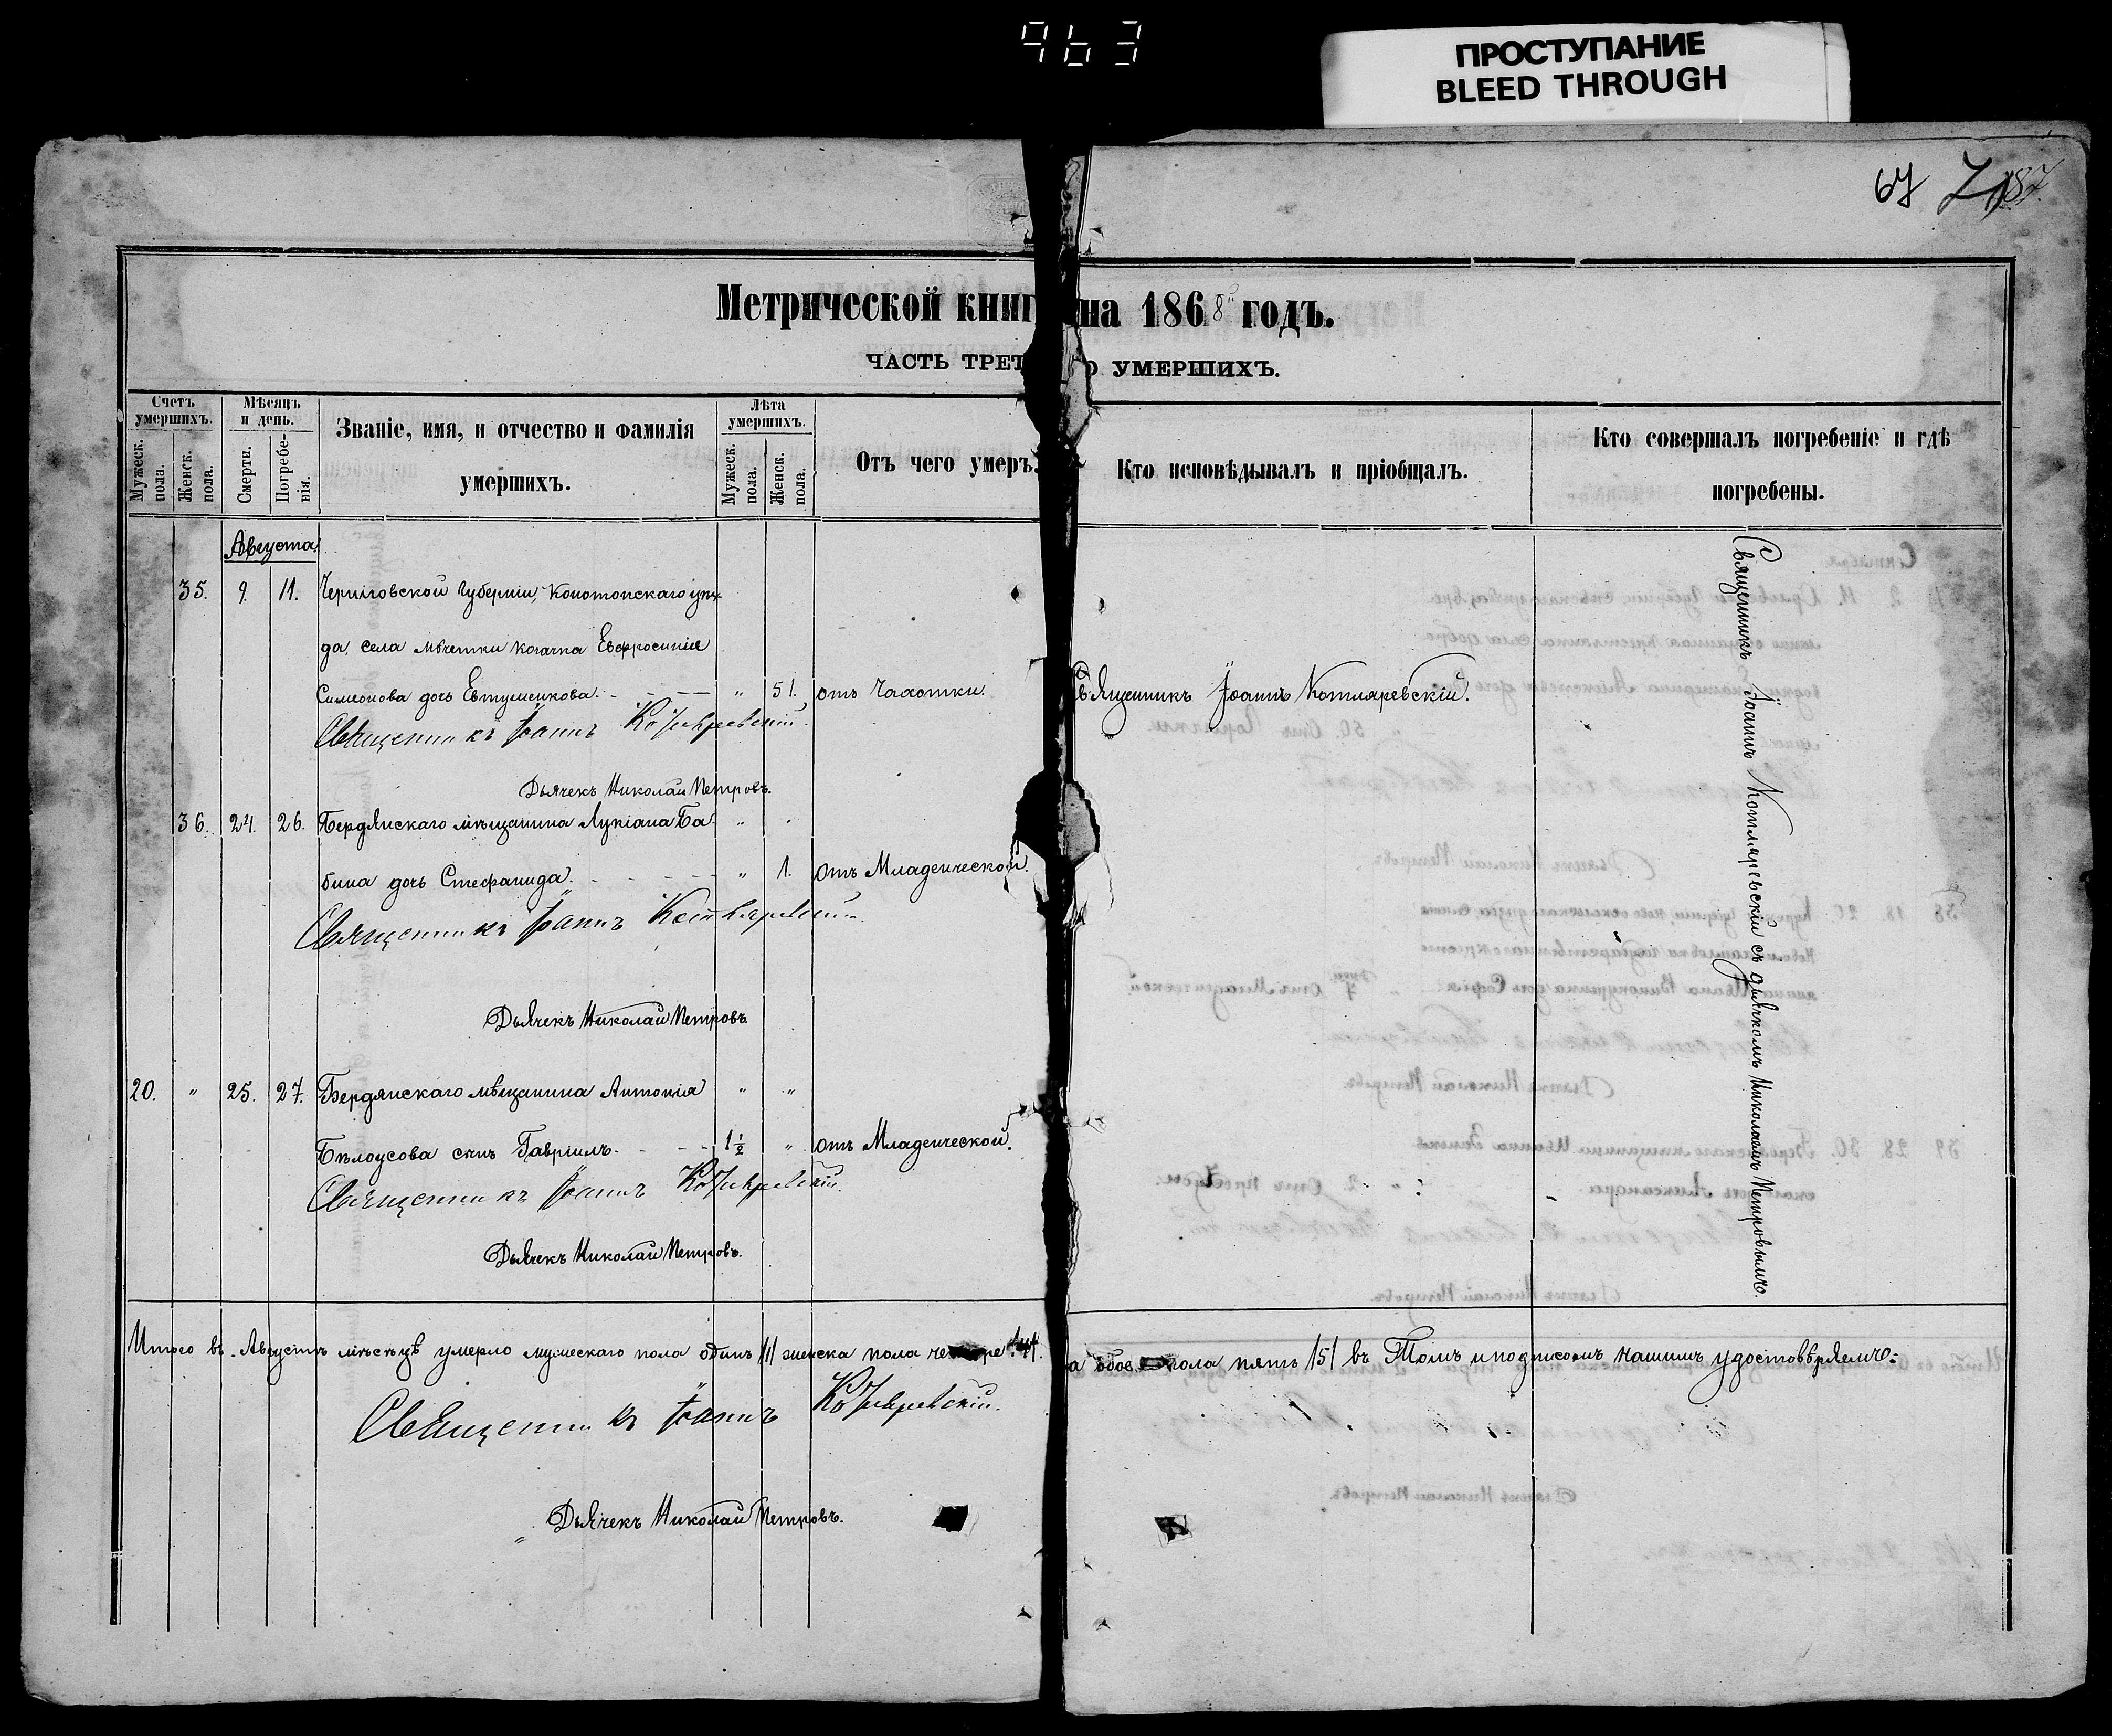 963
ПРОСТУПАНИЕ
BLEED THROUGH
67
Метрической книг на 1868 годъ.
ЧАСТЬ ТРЕТ О УМЕРШИХЪ.
Счетъ умершихъ.
Мужеск. пола.
Женск. пола.
Мѣсяцъ и день.
Смерти.
Погребенія.
Званіе, имя, и отчество и фамилія
умершихъ.
Лѣта умершихъ.
Мужеск. пола.
Женск. пола.
Отъ чего умеръ.
Кто исповѣдывалъ и пріобщалъ.
Кто совершалъ погребеніе и гдѣ
погребены.
Августа
35. 9. 11. Черниговской Губерніи, Конотопскаго уѣз
да, села казачка Евфросинія
Симеонова дочь Евтушенкова. - - - " 51. отъ Чахотки. Священникъ Іоаннъ Котляревскій.
Священникъ Іоаннъ Котляревскій.
Дьячекъ Николай Петровъ.
36. 24. 26. Бердянскаго мѣщанина Лукіана Ба " "
бина дочь Стефанида. - - - - " 1. отъ Младенческой.
Священникъ Іоаннъ Котляревскій
Дьячекъ Николай Петровъ.
20. " 25. 27. Бердянскаго мѣщанина Антонія " "
Бѣлоусова сынъ Гавріилъ. - - - 1½ " отъ Младенческой.
Священникъ Іоаннъ Котляревскій.
Дьячекъ Николай Петровъ.
Священникъ Іоаннъ Котляревскій съ дьячкомъ Николаемъ Петровымъ.
Итого въ Августѣ мѣсяцѣ умерло мужескаго пола одинъ /1/ женска пола четыре /4/. а обоего пола пять /5/ въ Томъ и подписомъ нашимъ удостовѣряемъ:
Священникъ Іоаннъ Котляревскій.
Дьячекъ Николай Петровъ.